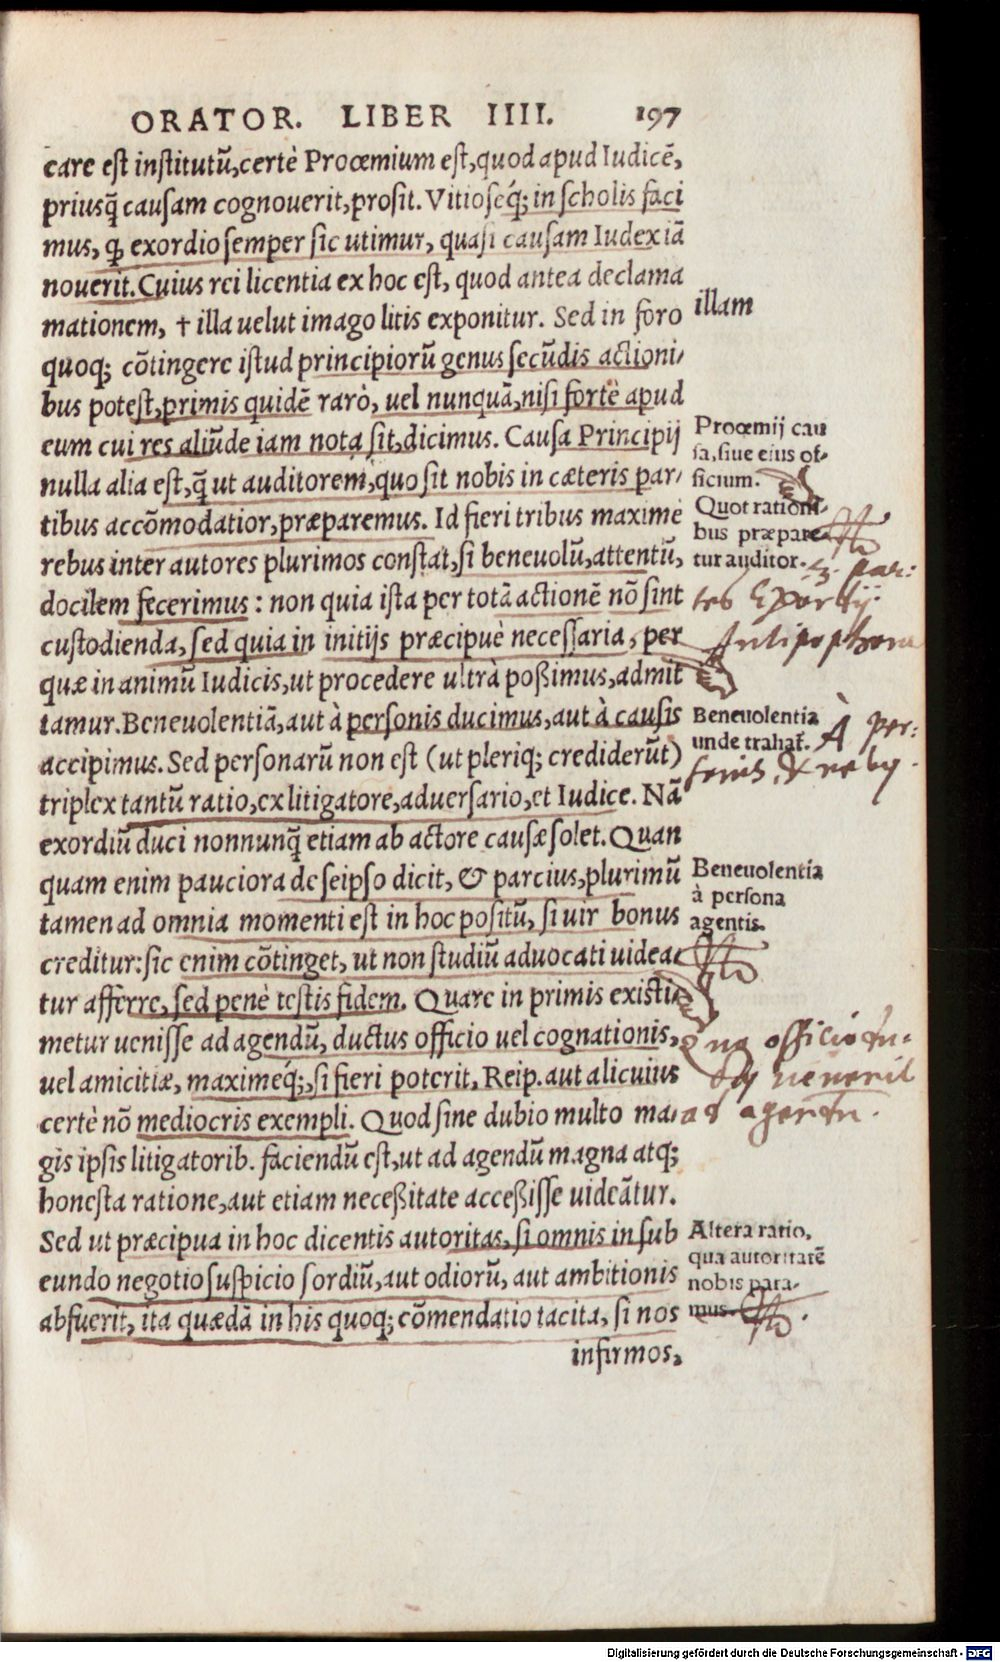 ORATOR. LIBER IIII. 197
care est institutũ,certè Procemium est,quod apud Iudicẽ,
priusq̃ causam cognouerit,prosit. Vitioseq́; in scholis faci
mus, ꝙ exordio semper sic utimur, quasi causam Iudex iã
nouerit. Cuius rei licentia ex hoc est, quod antea declama
mationem, † illa uelut imago litis exponitur. Sed in foro
illam
quoq; cõtingere istud principiorũ genus secũdis actioni/
bus potest,primis quidẽ rarò, uel nunquã,nisi fortè apud
eum cui res aliũde iam nota sit,dicimus. Causa Principij
nulla alia est,q̃ ut auditorem,quo sit nobis in cæteris par/
tibus accõmodatior,præparemus. Id fieri tribus maximè
rebus inter autores plurimos constat,si beneuolũ,attentũ,
docilem fecerimus : non quia ista per totã actionẽ nõ sint
custodienda, sed quia in initijs præcipuè necessaria, per
quæ in animũ Iudicis,ut procedere ultrà poßimus,admit
tamur. Beneuolentiã,aut à personis ducimus,aut à causis
accipimus. Sed personarũ non est (ut pleriq; crediderũt)
triplex tantũ ratio,ex litigatore,aduersario,et Iudice. Nã
exordiũ duci nonnunq̃ etiam ab actore causæ solet. Quan
quam enim pauciora de seipso dicit, & parcius,plurimũ
tamen ad omnia momenti est in hoc positũ, si uir bonus
creditur: sic enim cõtinget, ut non studiũ aduocati uidea/
tur afferre, sed penè testis fidem. Quare in primis existi/
metur uenisse ad agendũ, ductus officio uel cognationis,
uel amicitiæ, maximeq́;, si fieri poterit, Reip. aut alicuius
certè nõ mediocris exempli. Quod sine dubio multo ma/
gis ipsis litigatorib. faciendũ est,ut ad agendũ magna atq;
honesta ratione,aut etiam neceßitate acceßisse uideãtur.
Sed ut præcipua in hoc dicentis autoritas, si omnis in sub
eundo negotio suspicio sordiũ,aut odiorũ, aut ambitionis
abfuerit, ita quædã in his quoq; cõmendatio tacita, si nos
infirmos,
Procemij cau
sa,siue eius of-
ficium.
Quot rationi-
bus præpare-
tur auditor.
3. par:
tes Exordij:
Antipophora
Beneuolentia
unde trahat̃.
À per:
sonis, & rebus.
Beneuolentia
à persona
agentis.
Quo officio
uenerit
ad agendũ.
Altera ratio,
qua autoritatẽ
nobis para-
mus.